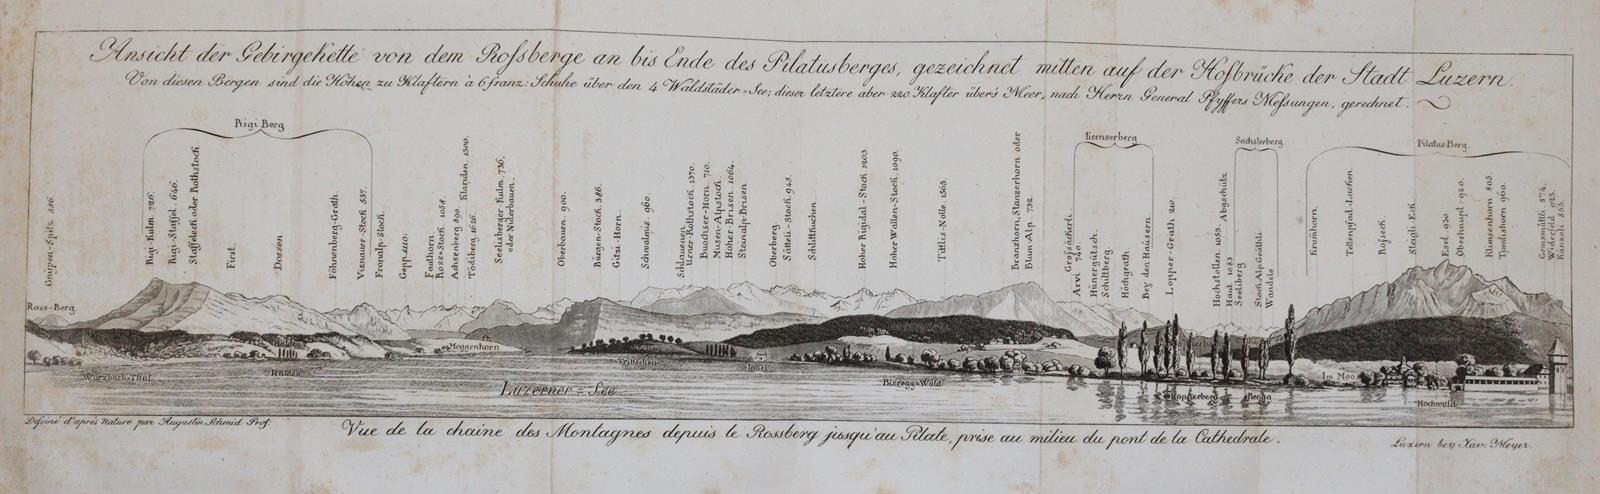 Ansicht der Gebirgskette von dem Roſsberge an bis Ende des Pilatusberges, gezeichnet mitten auf der Hofbrücke der Stadt Luzern.
Von diesen Bergen sind die Höhen zu Klaftern à 6 franz: Schuhe über den 4 Waldstäder-See; dieser letztere aber 220. Klafter über's Meer, nach Herrn General Pfyffers Meſsungen, gerechnet.
Rigi Berg
Kernserberg
Sachslerberg
Pilatus-Berg.
Gnipen-Spitz 586.
Rigi-Kulm. 726.
Rigi-Staffel. 646.
Staffeleck oder Rothstock.
First.
Dossen
Föhnenberg-Grath.
Viznauer-Stock 537.
Fronalp-Stock.
Faulhorn.
Ross-Stock. 1058.
Achsenberg 890
Tödiberg 1626.
Klariden. 1500.
Seelisberger-Kulm. 736.
oder Niderbauen.
Oberbauen. 900.
Bürgen-Stock. 386.
Gitzi-Horn.
Schwalmis. 960.
Urner-Rothstock. 1370.
Buochser-Horn. 710.
Musen-Alpstock.
Hoher-Brisen. 1064.
Steinalp-Brisen
Oberberg.
Sätteli-Stock. 945.
Schlittkuchen.
Hoher Rigidal-Stock. 1203.
Hoher Wallen-Stock. 1090.
Titlis-Nolle. 1565.
Branzhorn, Stanzerhorn oder
Blum-Alp. 732.
Großächerli.
Arvi 740.
Hünergütsch.
Schiltberg.
Höchgrath.
Bey den Hausern.
Lopper-Grath 210.
Hochstollen. 1055.
Abgschütz
Haut. 1085
Seelsberg
Wandele
Krumhorn.
Tellenpfad-Lucken.
Roſseck.
Steigli-Eck.
Esel. 930
Oberhaupt. 920.
Klimsenhorn 805.
Tomlishorn 960.
Gemsmättli 874.
Widerfeld. 923.
Känzeli. 855.
Ross-Berg
Würzbach-Thal.
Meggenhorn
Tribschen
Insel
Luzerner-See
Bieregg-Wald
Im Moos
Hochwald.
Deſsiné d'après Nature par Augustin Schmid Prof.
Vue de la chaine des Montagnes depuis le Rossberg jusqu'au Pilate, prise au milieu du pont de la Cathedrale.
Luzern bey Xav: Meyer.